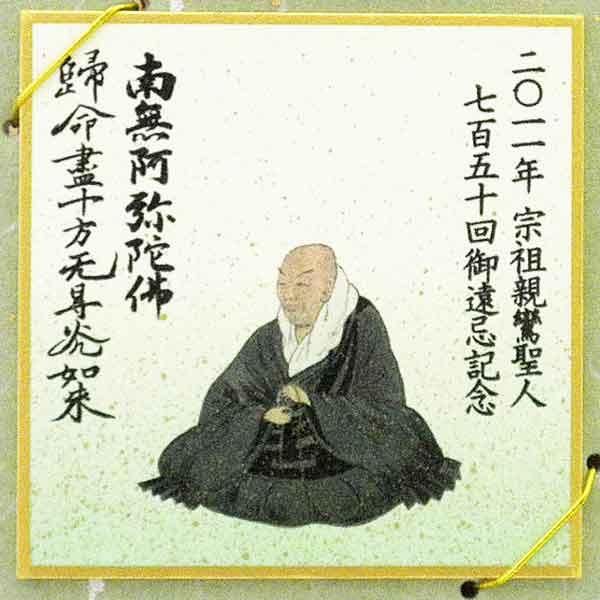 二〇一一年 宗祖親鸞聖人
七百五十回御遠忌記念
南無阿弥陀佛
歸命盡十方无㝵光如来